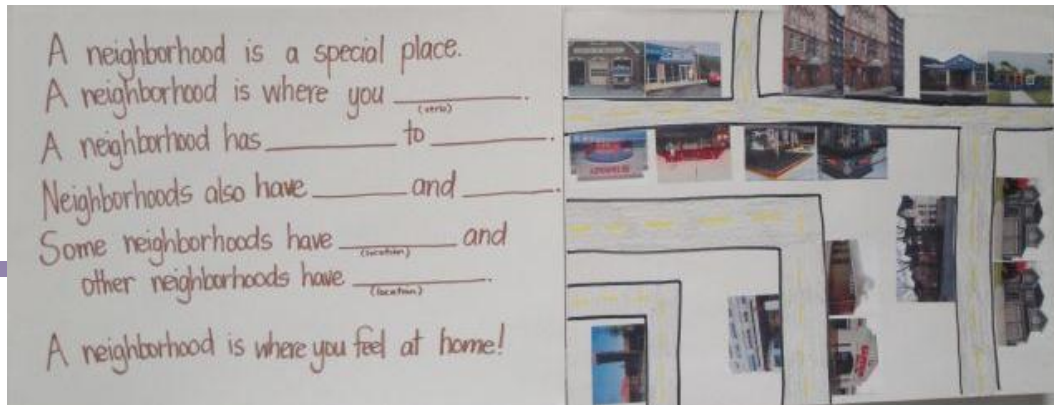 A neighborhood is a special place.
A neighborhood is where you ________.
(verb)
A neighborhood has ________ to ________.
Neighborhoods also have ________ and ________.
Some neighborhoods have ________ and
(location)
other neighborhoods have ________.
(location)
A neighborhood is where you feel at home!